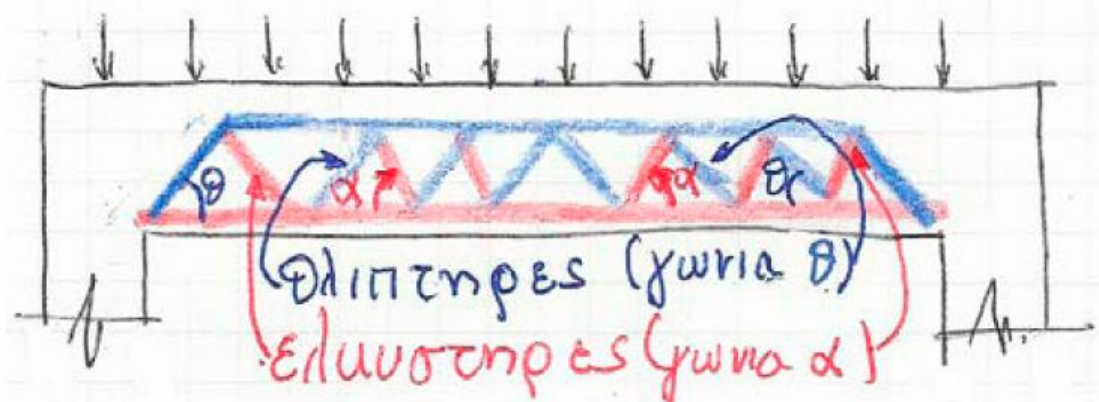 θ α α θ
θλιπτηρες (γωνια θ)
ελκυστηρες (γωνια α)